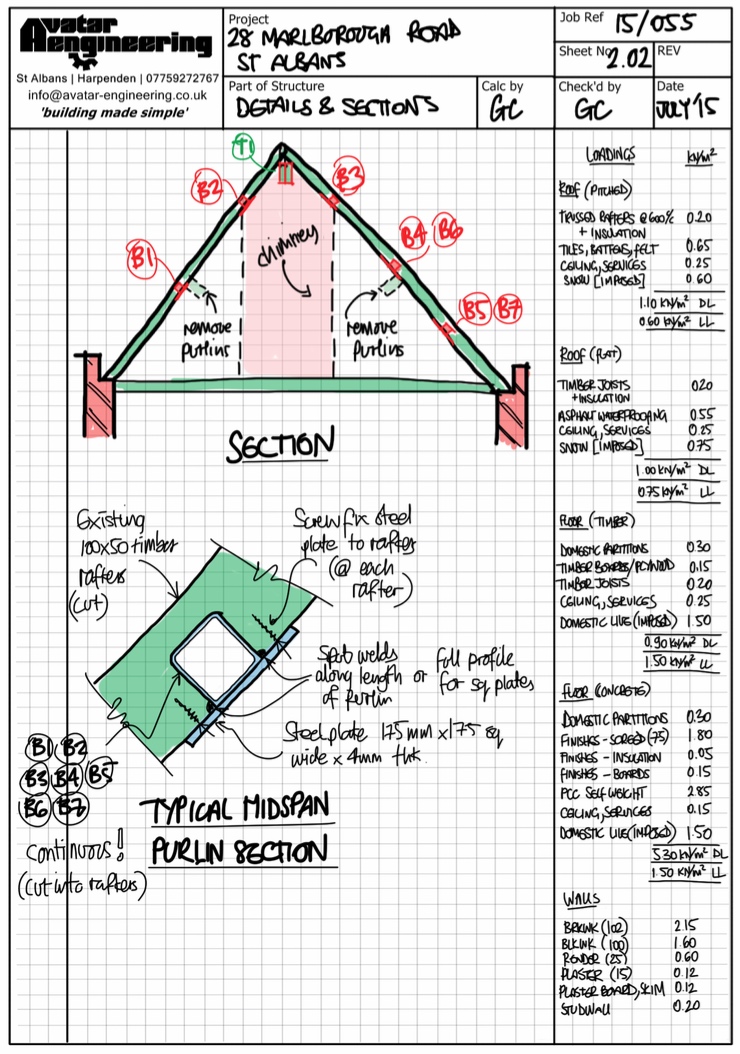 Avatar
Aengineering
St Albans | Harpenden | 07759272767
info@avatar-engineering.co.uk
'building made simple'
Project
28 MARLBOROUGH ROAD
ST ALBANS
Part of Structure
DETAILS & SECTIONS
Calc by
GC
Job Ref 15/055
Sheet No 2.02
REV
Check'd by
GC
Date
JULY '15
T1
B2
B3
B1
B4 B6
B5 B7
chimney
remove
purlins
remove
purlins
SECTION
Existing
100x50 timber
rafters
(cut)
Screw fix steel
plate to rafters
(@ each
rafter)
Spot welds
along length or
of purlin
full profile
for sq plates
Steel plate 175mm x 175 sq
wide x 4mm thk.
B1 B2
B3 B4 B5
B6 B7
continuous!
(cut into rafters)
TYPICAL MIDSPAN
PURLIN SECTION
LOADINGS KN/m²
ROOF (PITCHED)
TRUSSED RAFTERS @ 600% 0.20
+ INSULATION
TILES, BATTENS, FELT 0.65
CEILING, SERVICES 0.25
SNOW [IMPOSED] 0.60
1.10 KN/m² DL
0.60 KN/m² LL
ROOF (FLAT)
TIMBER JOISTS 0.20
+ INSULATION
ASPHALT WATERPROOFING 0.55
CEILING, SERVICES 0.25
SNOW [IMPOSED] 0.75
1.00 KN/m² DL
0.75 KN/m² LL
FLOOR (TIMBER)
DOMESTIC PARTITIONS 0.30
TIMBER BOARDS/PLYWOOD 0.15
TIMBER JOISTS 0.20
CEILING, SERVICES 0.25
DOMESTIC LIVE (IMPOSED) 1.50
0.90 KN/m² DL
1.50 KN/m² LL
FLOOR (CONCRETE)
DOMESTIC PARTITIONS 0.30
FINISHES - SCREED (75) 1.80
FINISHES - INSULATION 0.05
FINISHES - BOARDS 0.15
PCC SELF WEIGHT 2.85
CEILING, SERVICES 0.15
DOMESTIC LIVE (IMPOSED) 1.50
5.30 KN/m² DL
1.50 KN/m² LL
WALLS
BRKINK (102) 2.15
BLKINK (100) 1.60
RENDER (25) 0.60
PLASTER (15) 0.12
PLASTER BOARD, SKIM 0.12
STUDWALL 0.20